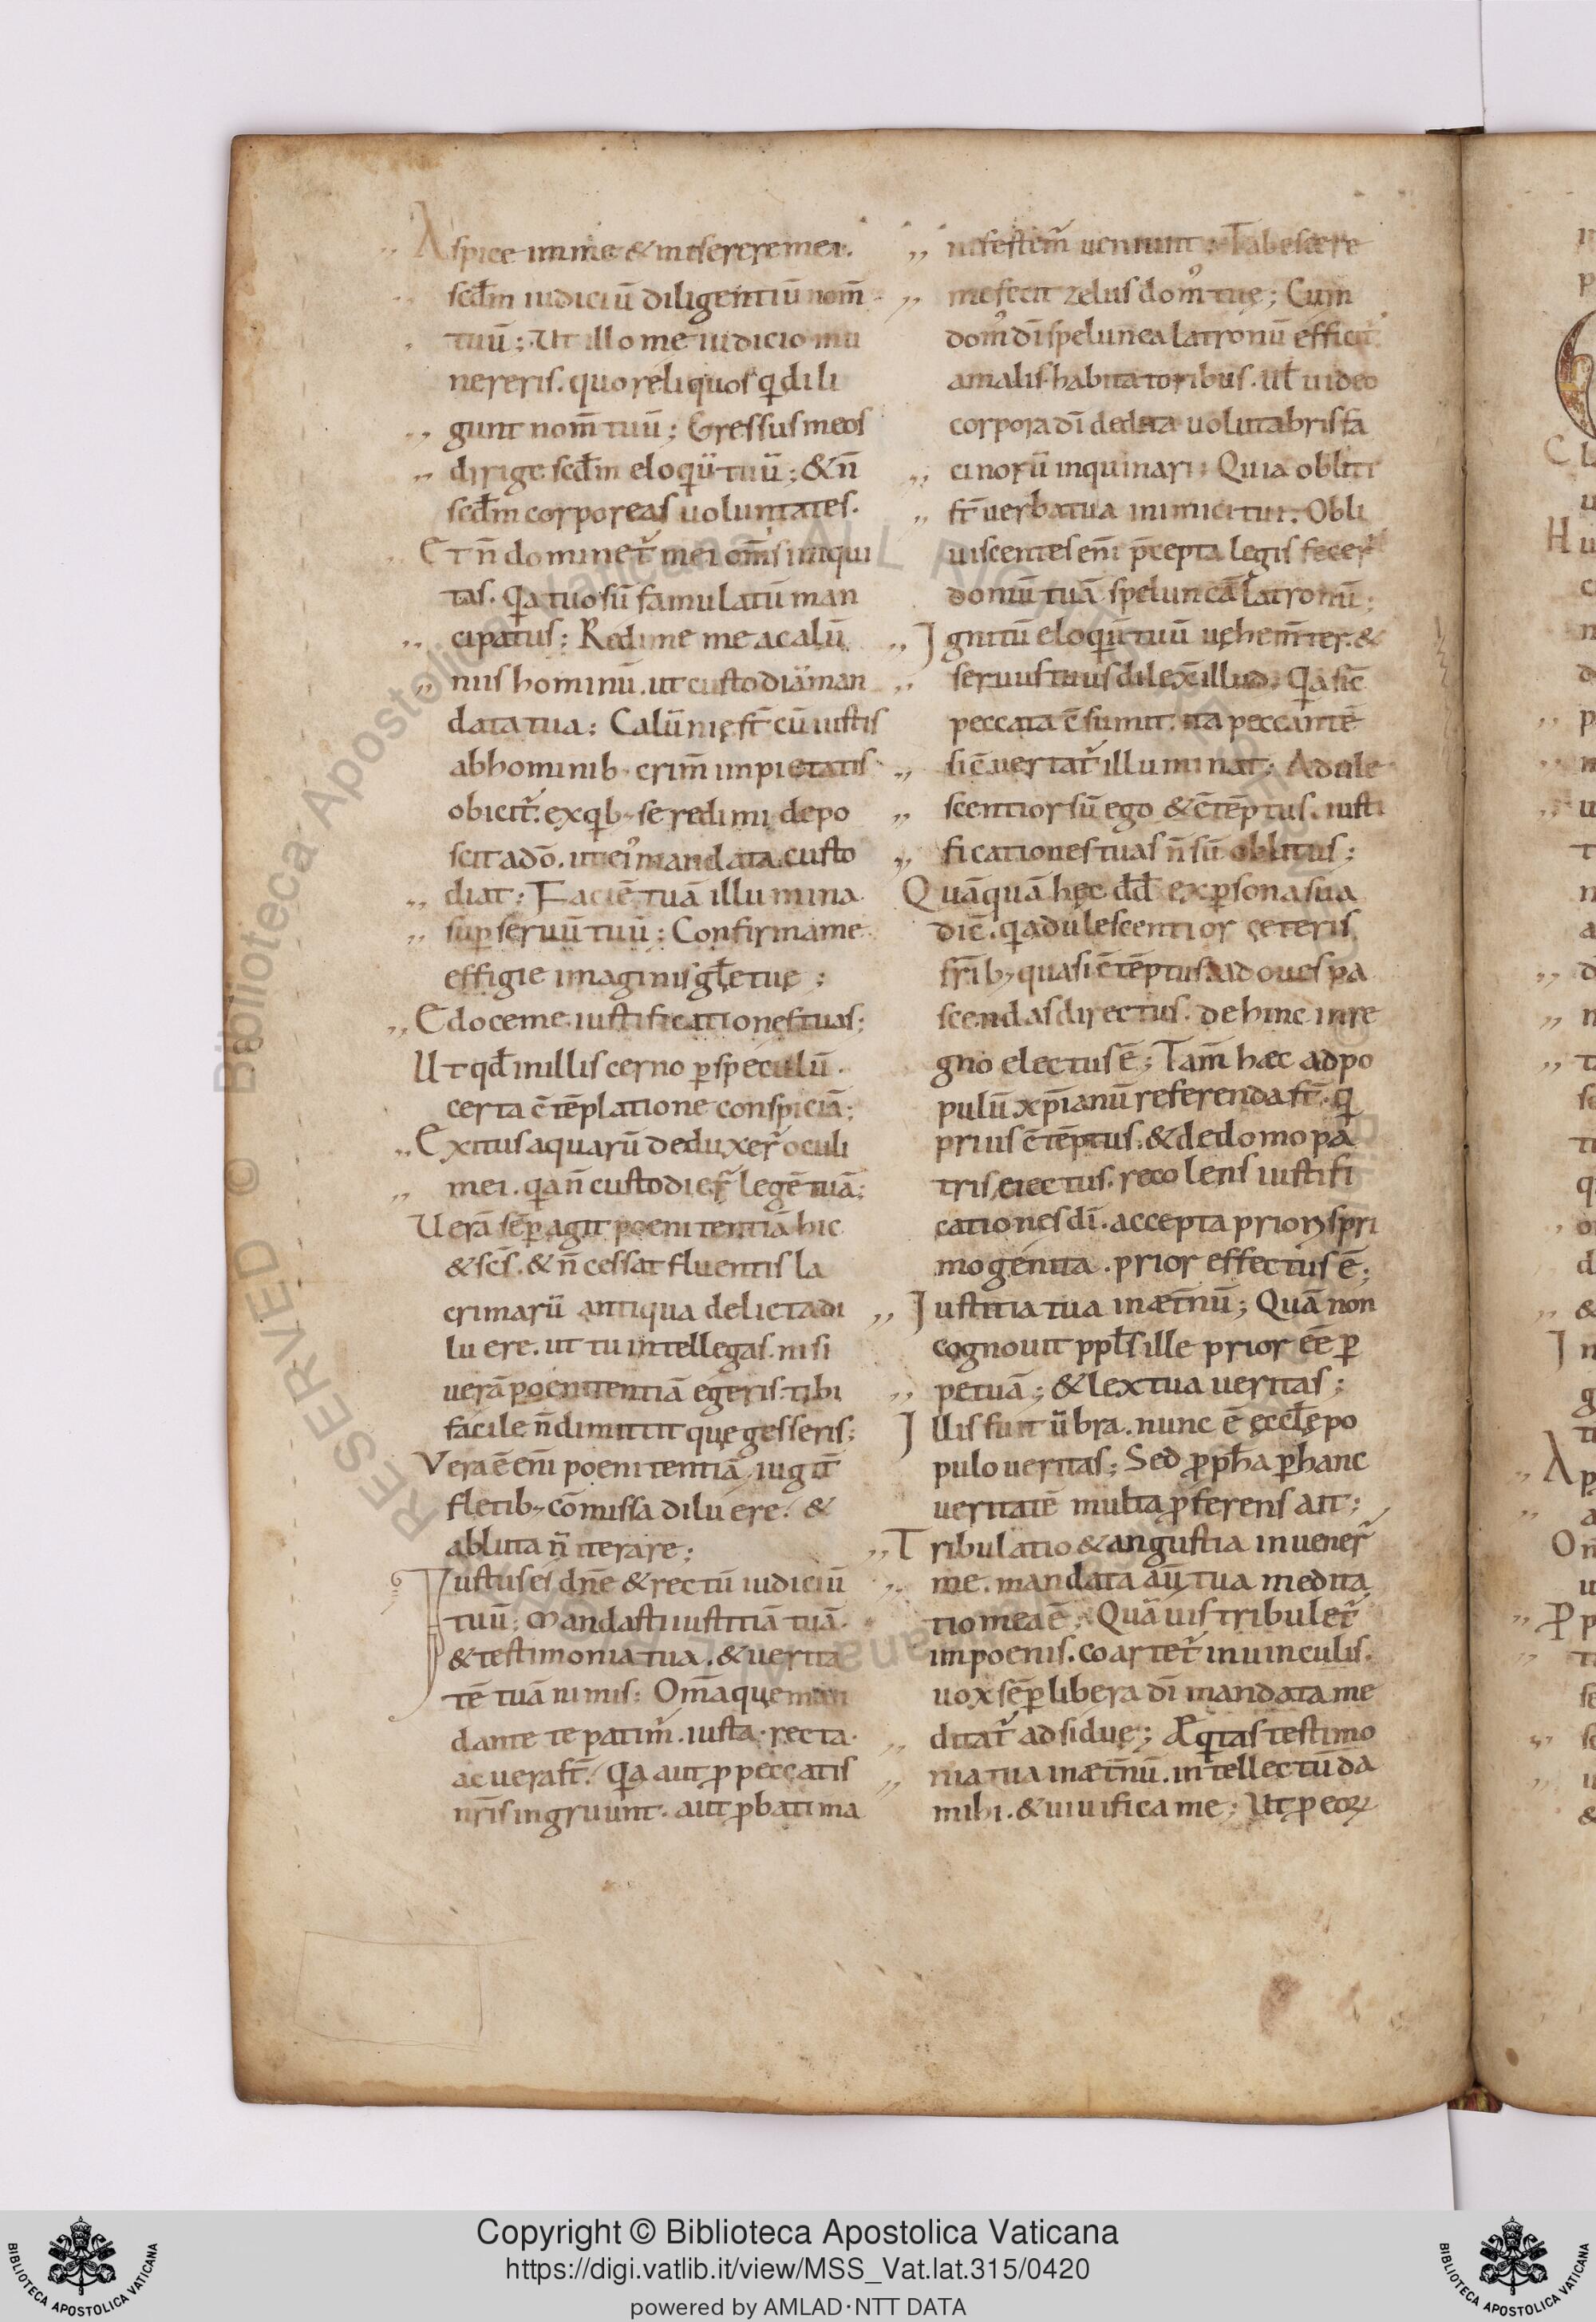 Aspice in me & miserere mei.
scdm̄ iudiciū diligentiū nom̄
tuū; Ut illo me iudicio mu
nereris. quo reliquos q̇ dili
gunt nom̄ tuū; Gressus meos
dirige scdm̄ eloq̇ū tuū; & n̄
scdm̄ corporeas uoluntates.
Et n̄ dominet̃ mei om̄s iniqui
tas. q̇a tuo sū famulatū man
cipatus; Redime me a calū
niis hominū. ut custodiā man
data tua; Calūnię st̄ cū iustis
ab hominib; crim̄ impietatis
obicit̃. ex q̇b; se redimi depo
scit a dō. ut ei᾽ mandata custo
diat; Faciē tuā illumina
suꝑ seruū tuū; Confirma me
effigie imaginis gl̄ę tuę;
Edoce me iustificationes tuas;
Ut qd̄ in illis cerno ꝑ speculū.
certa c̄tēplatione conspiciā;
Exitus aquarū deduxer̃ oculi
mei. q̇a n̄ custodier̃ legē tuā;
Uerā sēꝑ agit poenitentiā hic
& scs̄. & n̄ cessat fluentis la
crimarū antiqua delicta di
luere. ut tu intellegas. nisi
uerā poenitentiā egeris. tibi
facile n̄ dimittit quę gesseris;
Vera ē eni poenitentia. iugit̄
fletib; cōmissa diluere. &
abluta n̄ iterare;
Iustus es dn̄e & rectū iudiciū
tuū; Mandasti iustitiā tuā.
& testimonia tua. & uerita
tē tuā nimis; Om̄a quę man
dante te patim̃. iusta. recta.
ac uera st̄. Q̇a aut ꝓ peccatis
nr̄is ingruunt. aut ꝓbati ma
nifestem̃ ueniunt; Tabescere
me fecit zelus dom᾽ tuę; Cum
dom᾽ dī spelunca latronū efficit̃
a malis habitatoribus. Ul̄ uideo
corpora dī dedita uolutabris fa
cinorū inquinari; Quia obliti
st̄ uerba tua inimici tui. Obli
uiscentes eni p̄cepta legis fecer̃
domū tuā speluncā latronū;
Ignitū eloq̇ū tuū uęhem̄ter. &
seruus tuus dilex̄ illud. Q̇a sic̄
peccata c̄sumit. ita peccantē
si c̄uertat̃ illuminat; Adule
scentior sū ego & c̄tēptus. iusti
ficationes tuas n̄ sū oblitus;
Quāquā hęc dd̄ ex ꝑsona sua
dic̄. q̇ adulescentior ceteris
fr̄ib; quasi c̄tēptus ad oues pa
scendas directus. dehinc in re
gno electus ē; Tam̄ hæc ad po
pulū xp̄ianū referenda st̄. q̇
prius c̄tēptus. & de domo pa
tris eiectus. recolens iustifi
cationes dī. accepta prioris pri
mogenita. prior effectus ē;
Iustitia tua in æt̄nū; Quā non
cognouit ppl̄s ille prior eē ꝑ
petuā; & lex tua ueritas;
Illis fuit ūbra. nunc ē ęccl̄ę po
pulo ueritas; Sed ꝓph̄a ꝑ hanc
ueritatē multa ꝓferens ait;
Tribulatio & angustia inuener̃
me. mandata aūt tua medita
tio mea ē; Quāuis tribulet̃
in poenis. coartet̃ in uinculis.
uox sēꝑ libera dī mandata me
ditat̃ adsiduę; Æq̇tas testimo
nia tua in æt̄nū. intellectū da
mihi. & uiuifica me; Ut ꝑ eoꝝ
RESERVED © Biblioteca Apostolica Vaticana, ALL RIGHTS RESERVED © Biblioteca Apostolica Vaticana
Copyright © Biblioteca Apostolica Vaticana
https://digi.vatlib.it/view/MSS_Vat.lat.315/0420
powered by AMLAD·NTT DATA
BIBLIOTECA APOSTOLICA VATICANA
BIBLIOTECA APOSTOLICA VATICANA